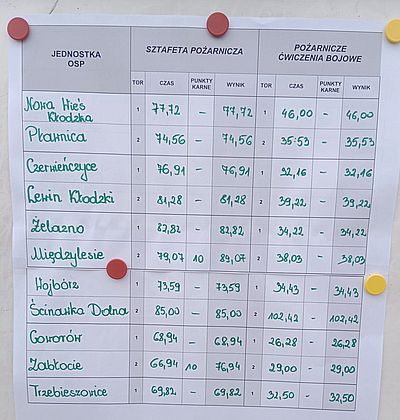 JEDNOSTKA OSP SZTAFETA POŻARNICZA POŻARNICZE ĆWICZENIA BOJOWE
TOR CZAS PUNKTY KARNE WYNIK TOR CZAS PUNKTY KARNE WYNIK
Nowa Wieś Kłodzka 1 77,72 – 77,72 1 46,00 – 46,00
Pławnica 2 74,56 – 74,56 2 35:53 – 35,53
Czerwieńczyce 1 76,91 – 76,91 1 32,16 – 32,16
Lewin Kłodzki 2 81,28 – 81,28 2 39,22 – 39,22
Żelazno 1 82,82 – 82,82 1 34,22 – 34,22
Międzylesie 2 79,07 10 89,07 2 38,03 – 38,03
Wojbórz 1 73,59 – 73,59 1 34,43 – 34,43
Ścinawka Dolna 2 85,00 – 85,00 2 102,42 – 102,42
Goworów 1 68,94 – 68,94 1 26,28 – 26,28
Zabłocie 2 66,94 10 76,94 2 29,00 – 29,00
Trzebieszowice 1 69,82 – 69,82 1 32,50 – 32,50